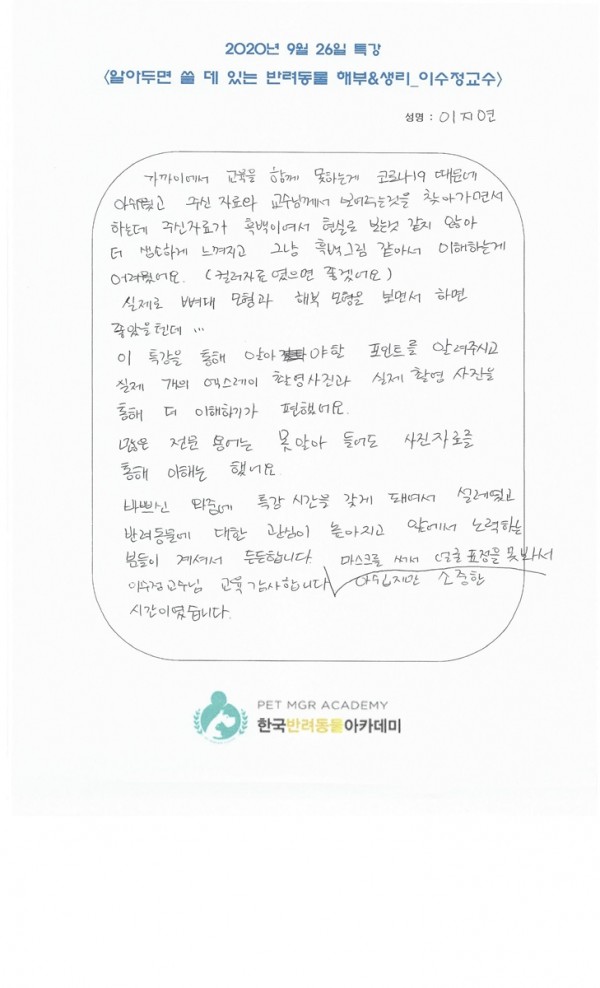 2020년 9월 26일 특강
<알아두면 쓸 데 있는 반려동물 해부&생리_이수정교수>
성명 : 이지연
가까이에서 교육을 함께 못하는게 코로나19 때문에
아쉬웠고 주신 자료와 교수님께서 보여주는것을 찾아가면서
하는데 주신자료가 흑백이여서 현실로 보는것 같지 않아
더 생소하게 느껴지고 그냥 흑백그림 같아서 이해하는게
어려웠어요. (컬러자료였으면 좋겠어요)
실제로 뼈대 모형과 해부 모형을 보면서 하면
좋았을텐데 ...
이 특강을 통해 알아야할 포인트를 알려주시고
실제 개의 엑스레이 촬영사진과 실제 촬영 사진을
통해 더 이해하기가 편했어요.
많은 전문 용어는 못알아 들어도 사진자료를
통해 이해는 했어요.
바쁘신 와중에 특강 시간을 갖게 돼여서 설레였고
반려동물에 대한 관심이 높아지고 앞에서 노력하는
분들이 계셔서 든든합니다. 마스크를 써서 얼굴 표정을 못봐서
이수정교수님 교육 감사합니다 아쉽지만 소중한
시간이였습니다.
PET MGR ACADEMY
한국반려동물아카데미